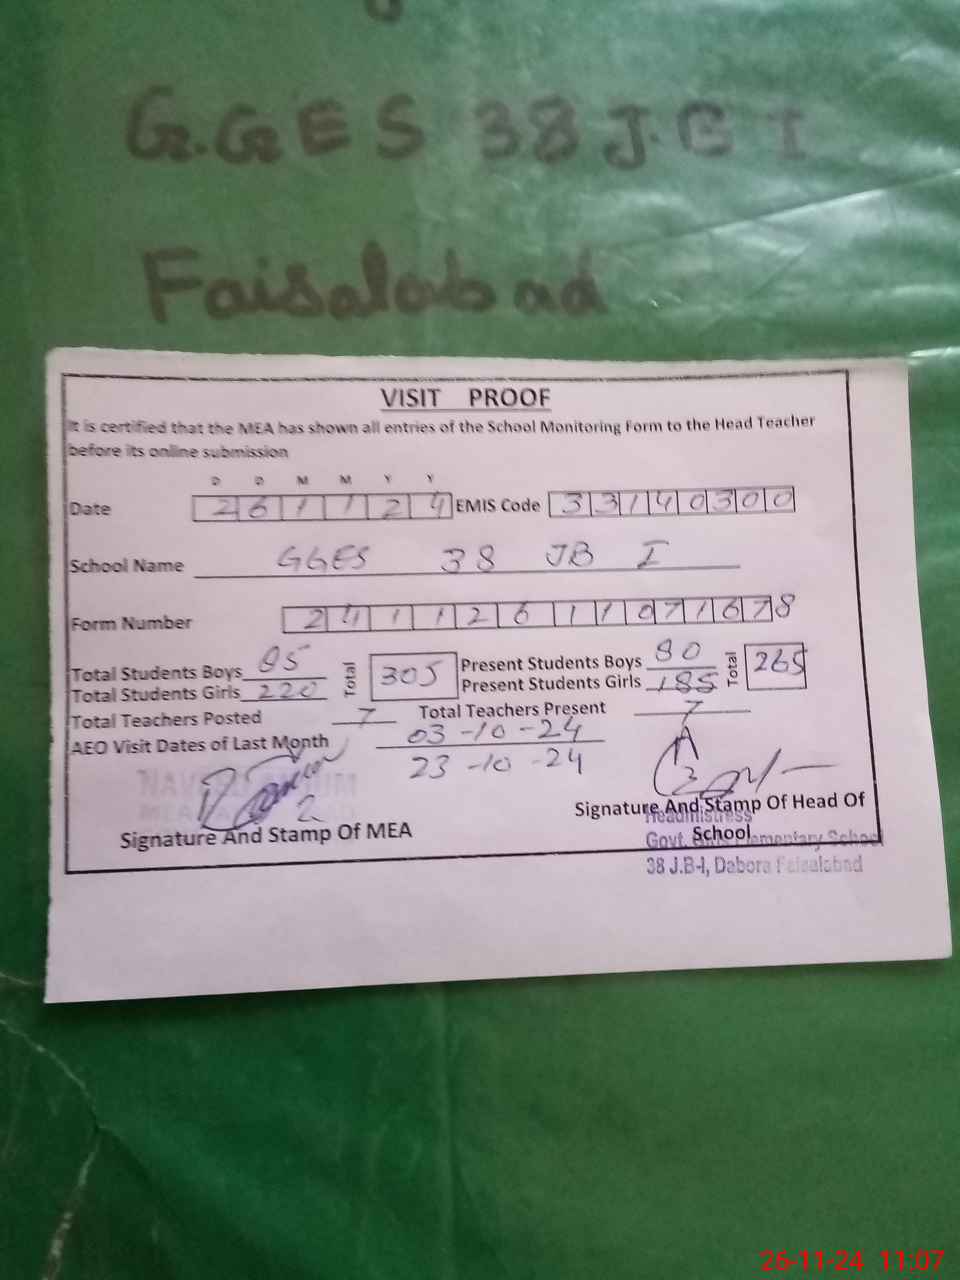 G.GES 38 J.B I
Faisalabad
VISIT PROOF
It is certified that the MEA has shown all entries of the School Monitoring Form to the Head Teacher
before its online submission
D D M M Y Y
Date 261124 EMIS Code 33140300
School Name GGES 38 JB I
Form Number 24112611071678
Total Students Boys 85 Total 305 Present Students Boys 80 Total 265
Total Students Girls 220 Present Students Girls 185
Total Teachers Posted 7 Total Teachers Present 7
AEO Visit Dates of Last Month 03-10-24
23-10-24
Signature And Stamp Of MEA
Signature And Stamp Of Head Of
School
Headmistress
Govt. Girls Elementary School
38 J.B-I, Dabora Faisalabad
26-11-24 11:07